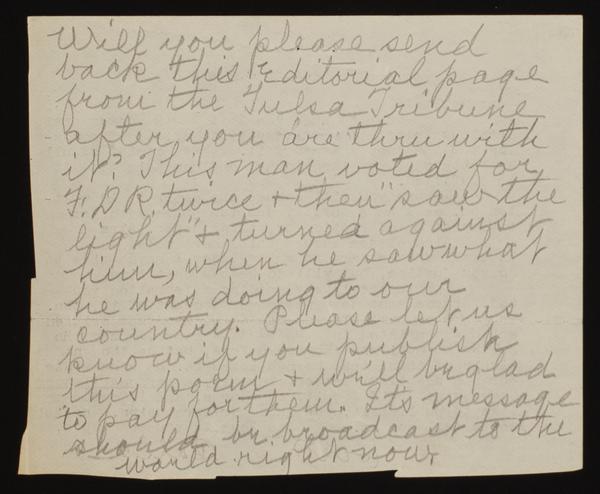 Will you please send
back this Editorial page
from the Tulsa Tribune
after you are thru with
it? This man voted for
F.D.R. twice + then "saw the
light" + turned against
him, when he saw what
he was doing to our
country. Please let us
know if you publish
this poem + we'll be glad
to pay for them. It's message
should be broadcast to the
world right now.